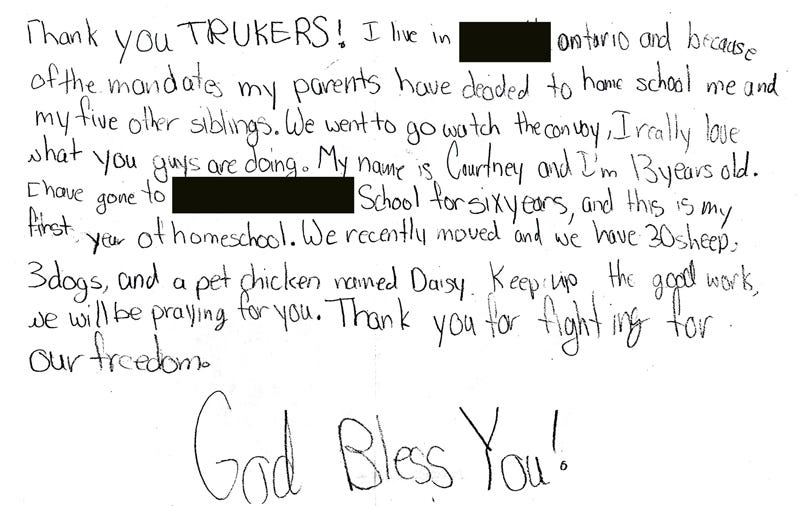 Thank you TRUKERS! I live in ontario and because
of the mandates my parents have decided to home school me and
my five other siblings. We went to go watch the convoy, I really love
what you guys are doing. My name is Courtney and I'm 13 years old.
I have gone to School for six years, and this is my
first year of homeschool. We recently moved and we have 30 sheep,
3 dogs, and a pet chicken named Daisy. Keep up the good work,
we will be praying for you. Thank you for fighting for
our freedom.
God Bless You!